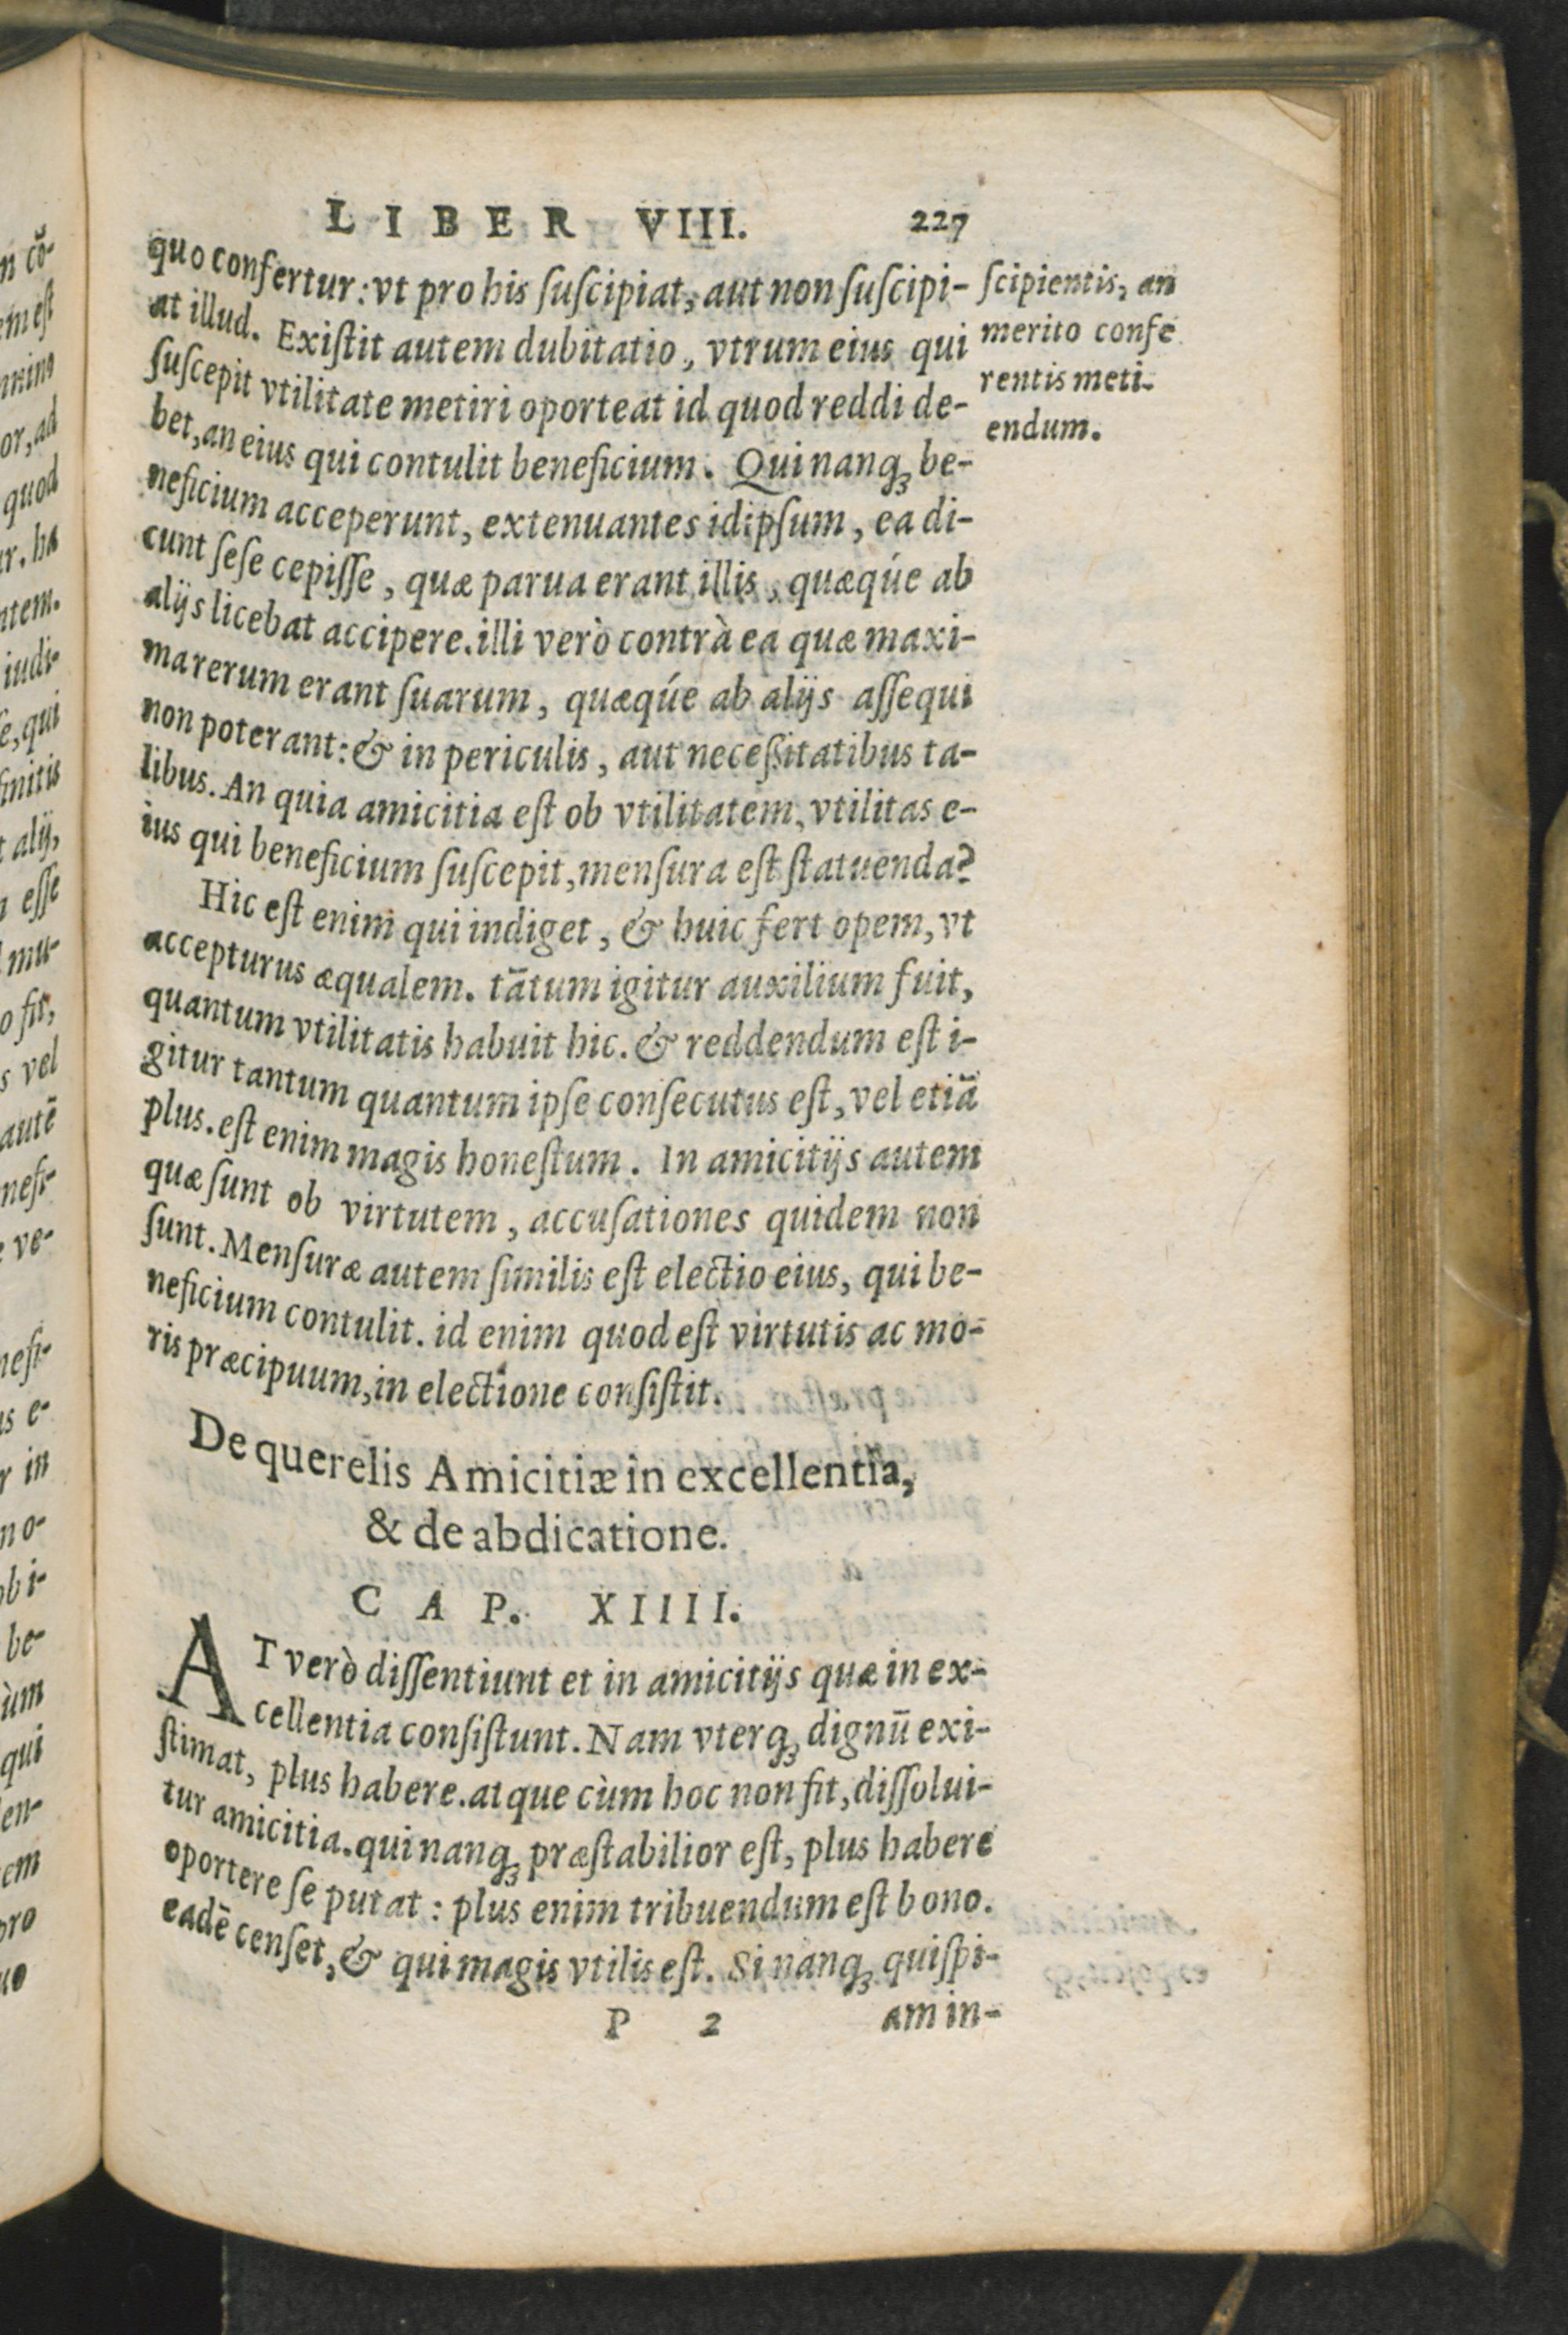 LIBER VIII. 227
quo confertur: vt pro his suscipiat, aut non suscipi-
at illud. Existit autem dubitatio, vtrum eius qui
suscepit vtilitate metiri oporteat id quod reddi de-
bet, an eius qui contulit beneficium. Qui nanq; be-
neficium acceperunt, extenuantes id ipsum, ea di-
cunt sese cepisse, quæ parua erant illis, quæqúe ab
alijs licebat accipere. illi verò contrà ea quæ maxi-
ma rerum erant suarum, quæqúe ab alijs assequi
non poterant: & in periculis, aut necessitatibus ta-
libus. An quia amicitia est ob vtilitatem, vtilitas e-
ius qui beneficium suscepit, mensura est statuenda?
Hic est enim qui indiget, & huic fert opem, vt
accepturus æqualem. tātum igitur auxilium fuit,
quantum vtilitatis habuit hic. & reddendum est i-
gitur tantum quantum ipse consecutus est, vel etiā
plus. est enim magis honestum. In amicitijs autem
quæ sunt ob virtutem, accusationes quidem non
sunt. Mensuræ autem similis est electio eius, qui be-
neficium contulit. id enim quod est virtutis ac mo-
ris præcipuum, in electione consistit.
De querelis Amicitiæ in excellentia,
& de abdicatione.
CAP. XIIII.
AT verò dissentiunt et in amicitijs quæ in ex-
cellentia consistunt. Nam vterq; dignū exi-
stimat, plus habere. atque cùm hoc non fit, dissolui-
tur amicitia. qui nanq; præstabilior est, plus habere
oportere se putat: plus enim tribuendum est bono.
eadē censet, & qui magis vtilis est. Si nanq; quispi-
P 2 am in-
scipientis, an
merito confe
rentis meti-
endum.